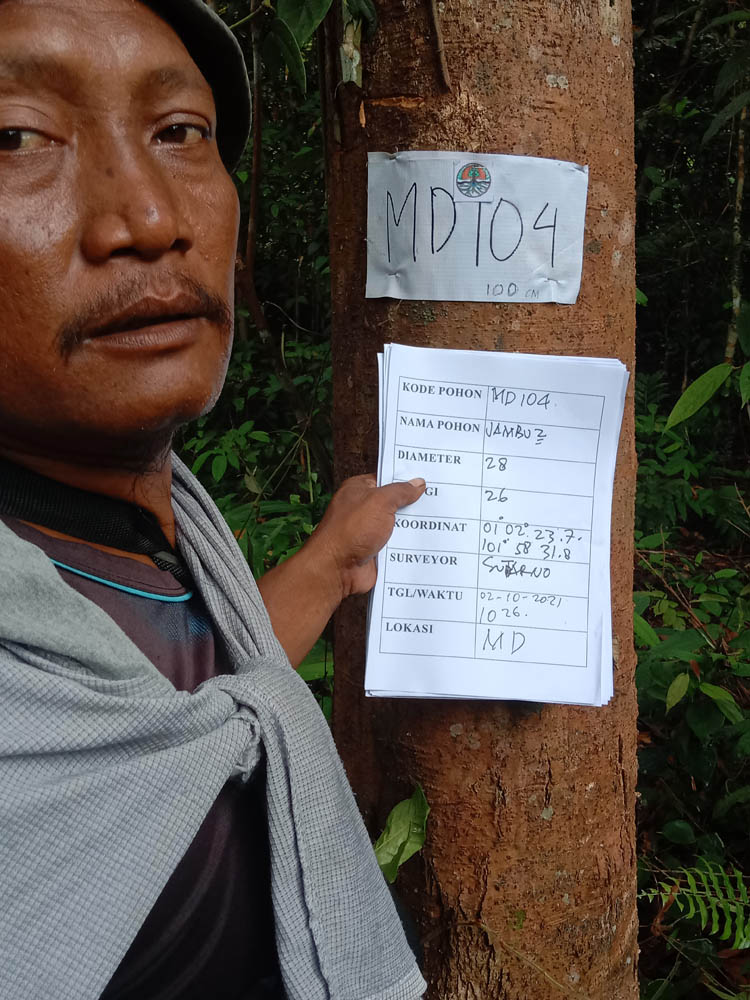 MD104
100 CM
KODE POHON MD104.
NAMA POHON JAMBU2
DIAMETER 28
GI 26
KOORDINAT 01° 02° 23.7.
101° 58 31.8
SURVEYOR
TGL/WAKTU 02-10-2021.
1026.
LOKASI MD